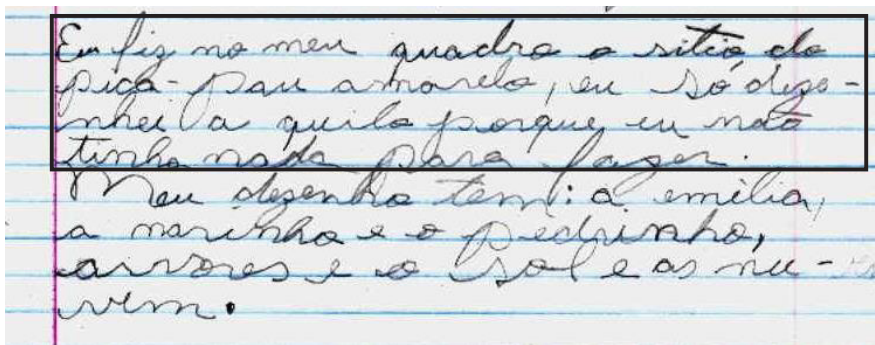 Eu fiz no meu quadro o sitio do
pica-pau amarelo, eu só dese-
nhei a quilo porque eu não
tinha nada para fazer.
Meu desenho tem: a emilia,
a narinha e o pedrinho,
arvores e o sol e as nu-
vem.